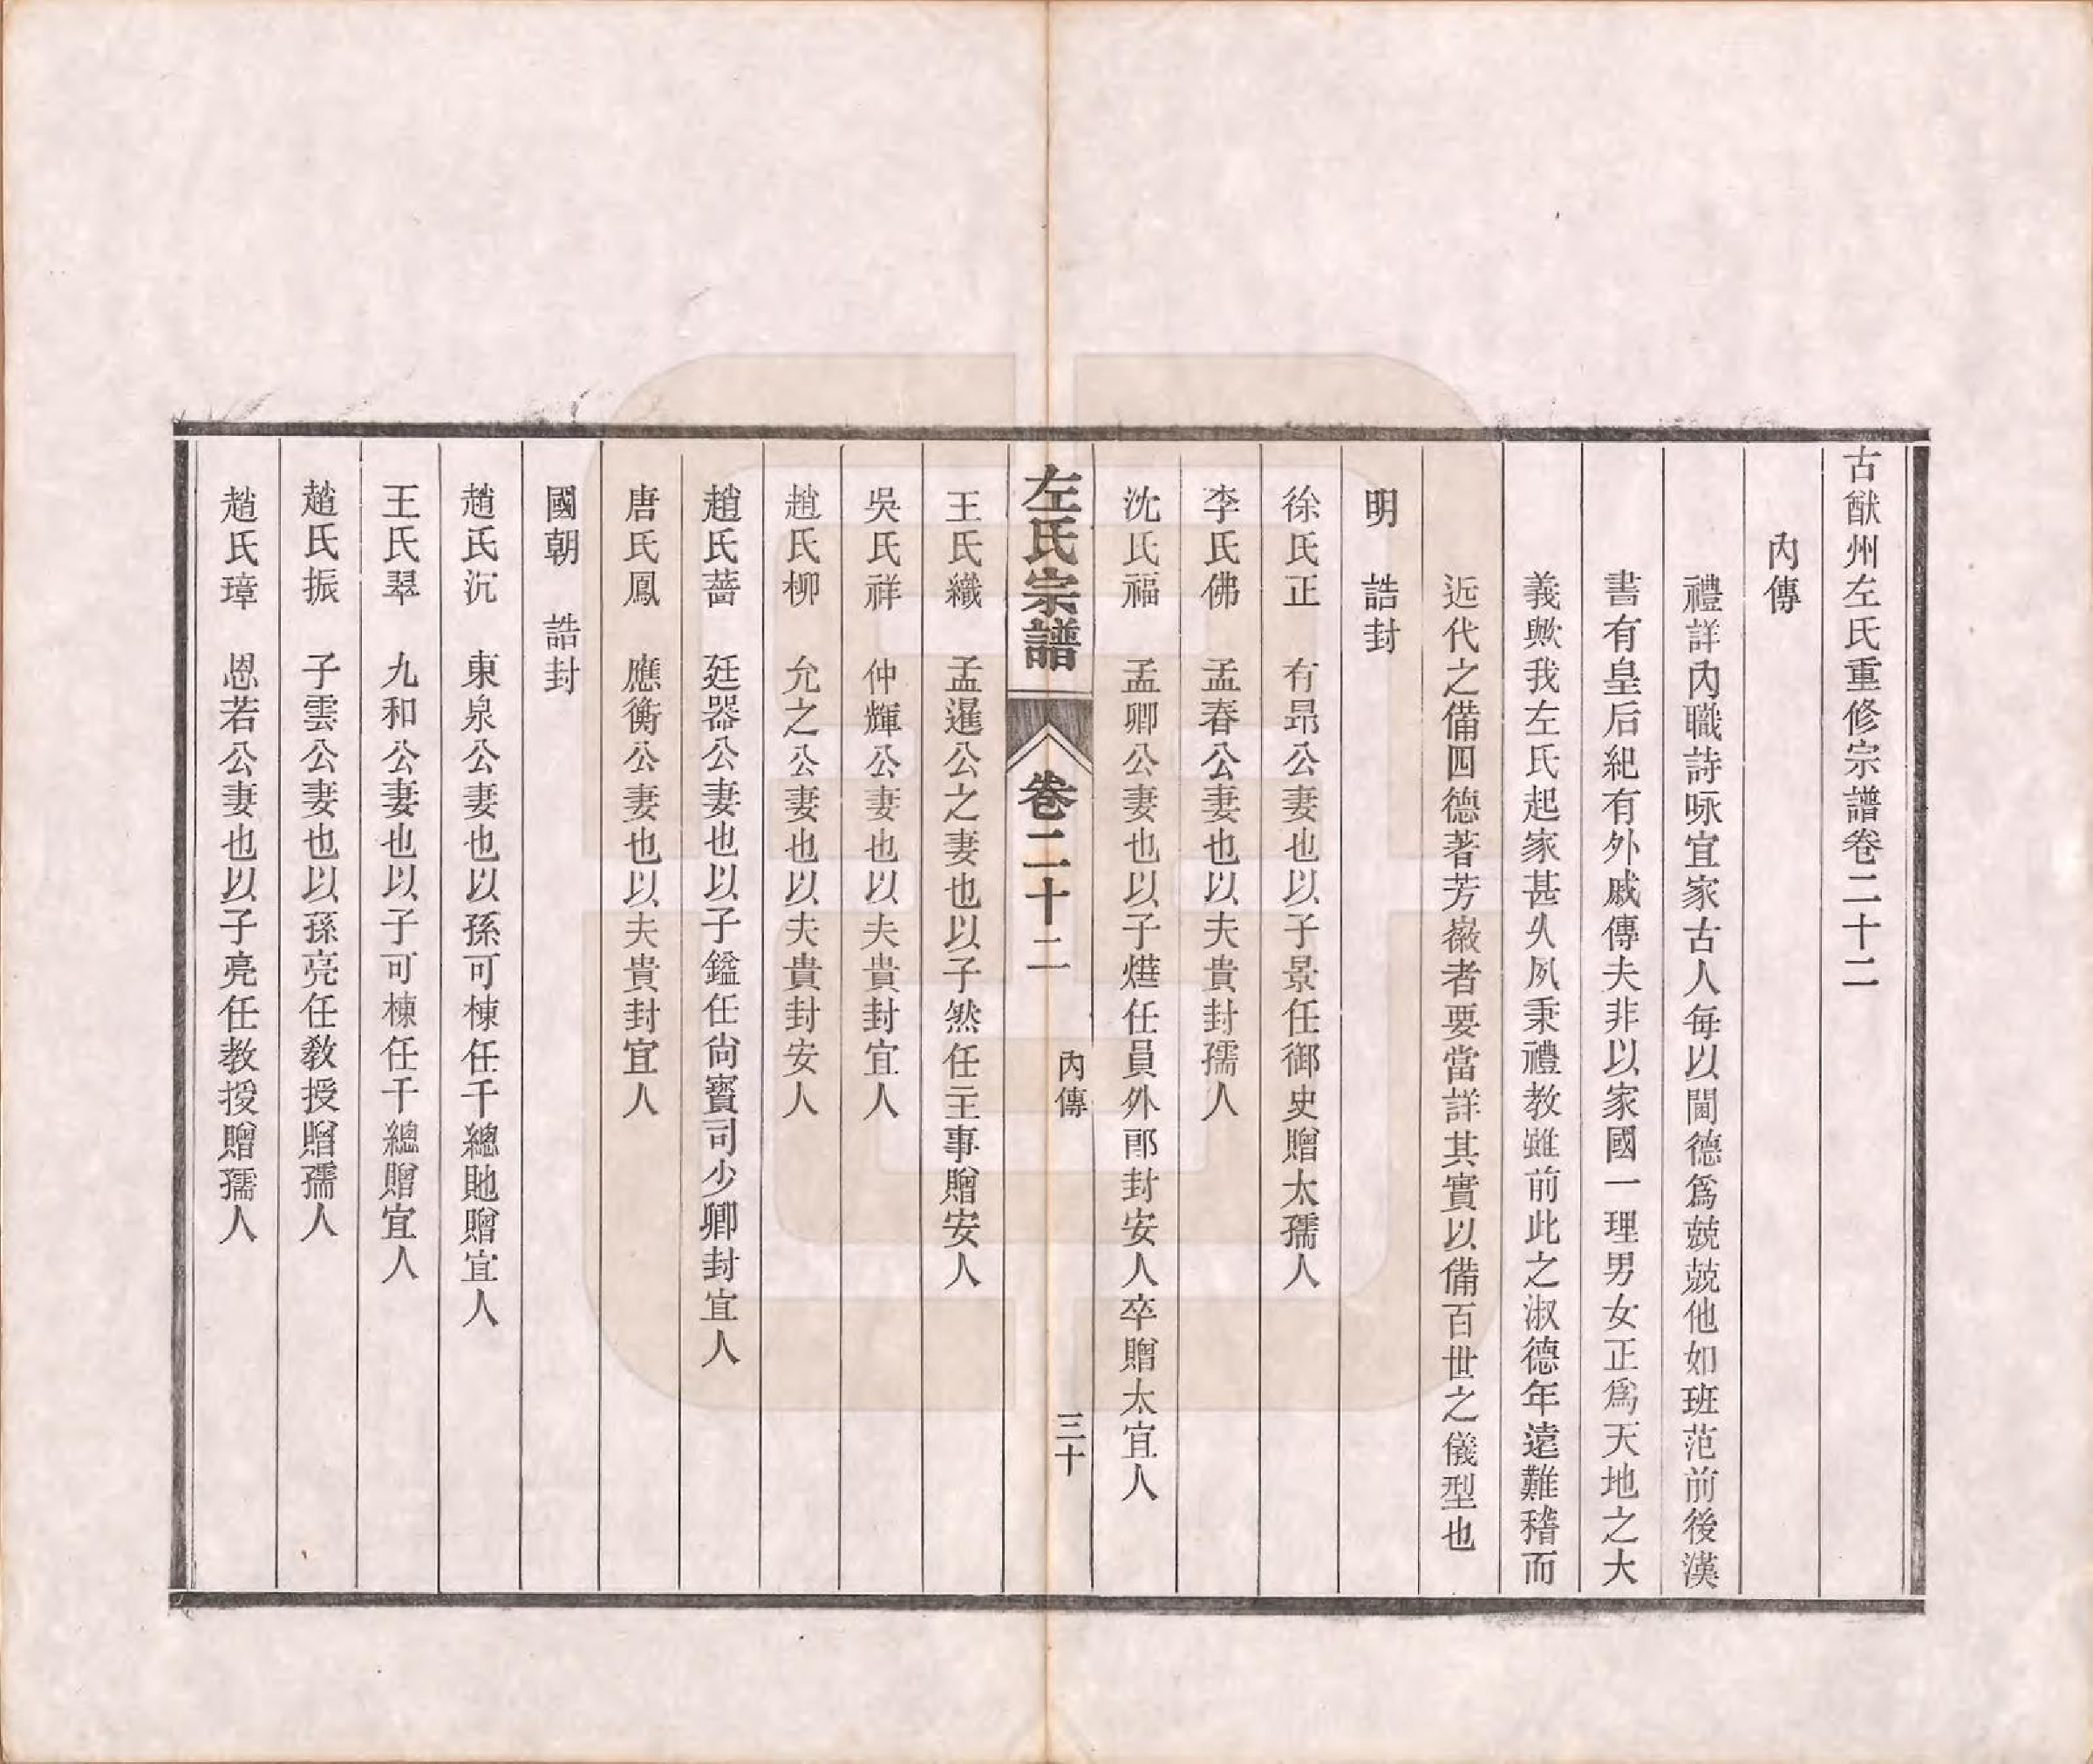 古猷州左氏重修宗譜卷二十二
內傳
禮詳內職詩咏宜家古人每以閫德爲兢兢他如班范前後漢
書有皇后紀有外戚傳夫非以家國一理男女正爲天地之大
義歟我左氏起家甚久夙秉禮教雖前此之淑德年遠難稽而
近代之備四德著芳嶶者要當詳其實以備百世之儀型也
明　誥封
徐氏正　有昂公妻也以子景任御史贈太孺人
李氏佛　孟春公妻也以夫貴封孺人
沈氏福　孟卿公妻也以子㷸任員外郎封安人卒贈太宜人
左氏宗譜　卷二十二　內傳　三十
王氏織　孟暹公之妻也以子然任主事贈安人
吳氏祥　仲輝公妻也以夫貴封宜人
趙氏柳　允之公妻也以夫貴封安人
趙氏薔　廷器公妻也以子鎰任尙寶司少卿封宜人
唐氏鳳　應衡公妻也以夫貴封宜人
國朝　誥封
趙氏沉　東泉公妻也以孫可棟任千總貤贈宜人
王氏翠　九和公妻也以子可棟任千總贈宜人
趙氏振　子雲公妻也以孫亮任敎授貤贈孺人
趙氏璋　恩若公妻也以子亮任教授贈孺人